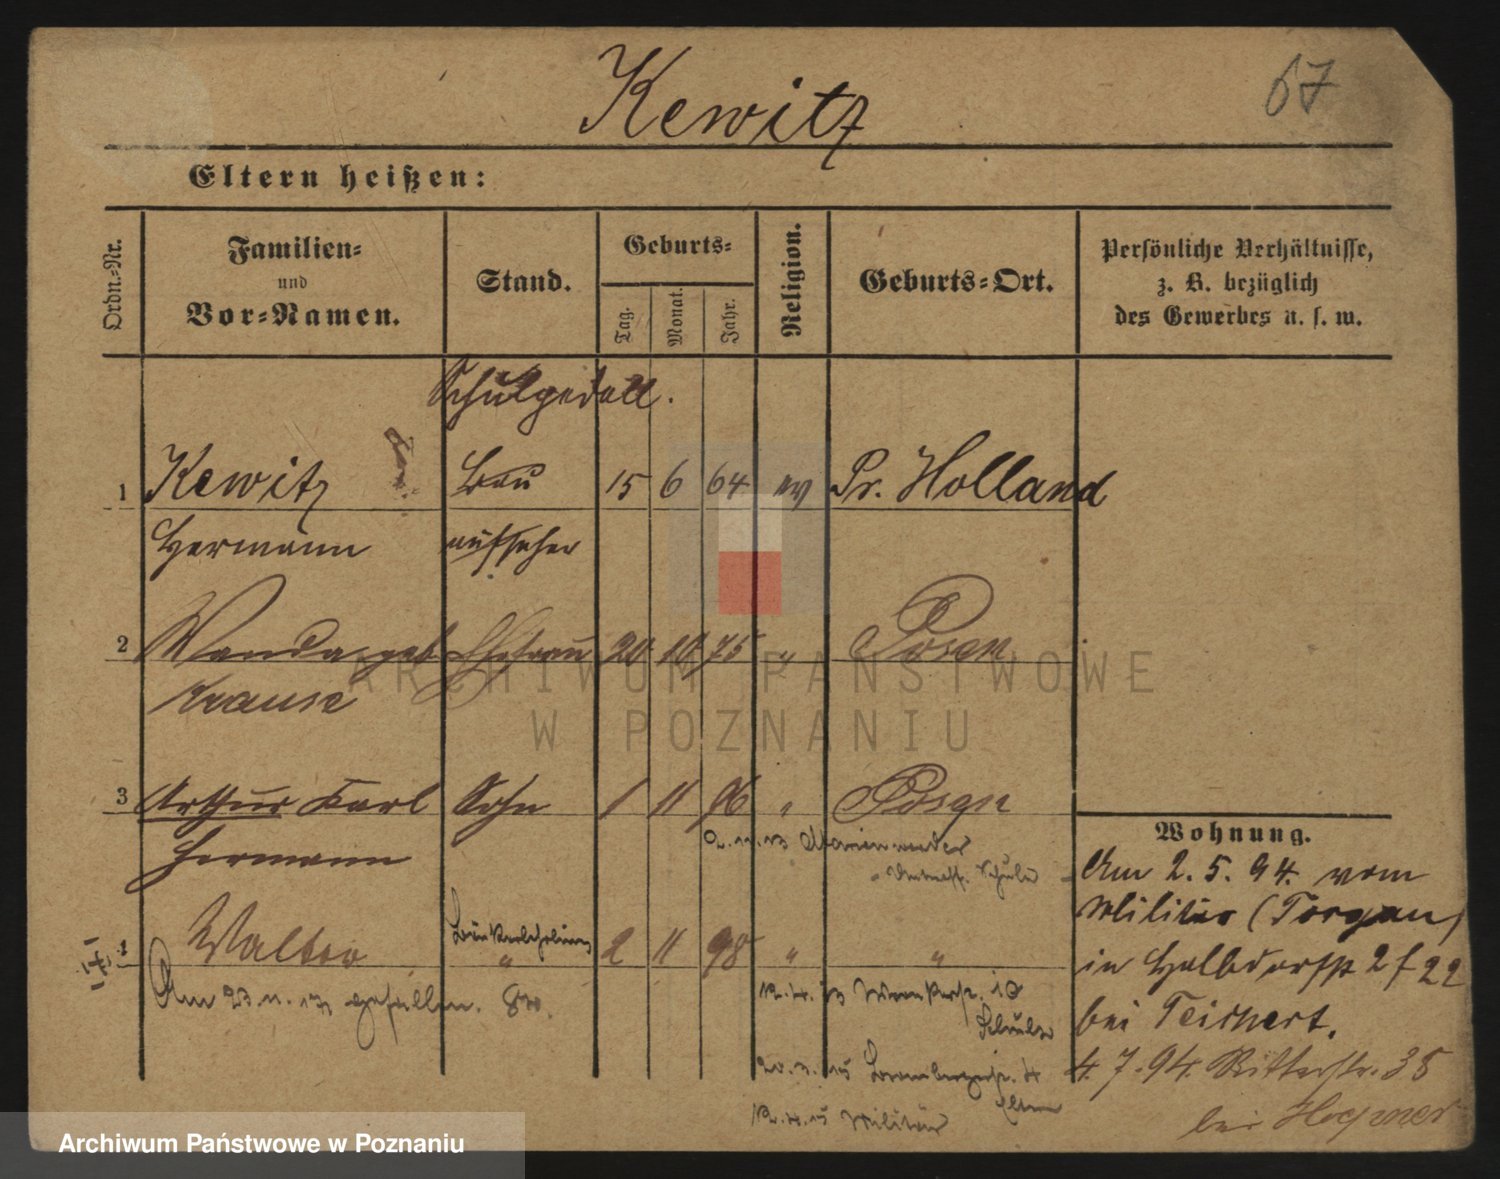 Kewitz
67
Eltern heißen:
Ordn.-Nr.
Familien-
und
Vor-Namen.
Stand.
Geburts-
Tag.
Monat.
Jahr.
Religion.
Geburts-Ort.
Persönliche Verhältnisse,
z. B. bezüglich
des Gewerbes u. s. w.
Schulpedell.
1 Kewitz Bau 15 6 64 ev Pr. Holland
Hermann aufseher
2 Wanda geb Ehefrau 20 10 75 " Posen
Krause
3 Arthur Karl Sohn 1 11 96 " Posen
Hermann
2.11.13 Marienwerder
Unteroff. Schule
4 Walter " 2 11 98 " "
Am 23.11.17 gefallen.
Schulze
20.3.15 4
Eltern
15 Militär
Wohnung.
Am 2. 5. 94. vom
Militär (Torgau)
in Halbdorfstr 22
bei Teichert.
4. 7. 94. Ritterstr. 35
bei
ARCHIWUM PAŃSTWOWE
W POZNANIU
Archiwum Państwowe w Poznaniu